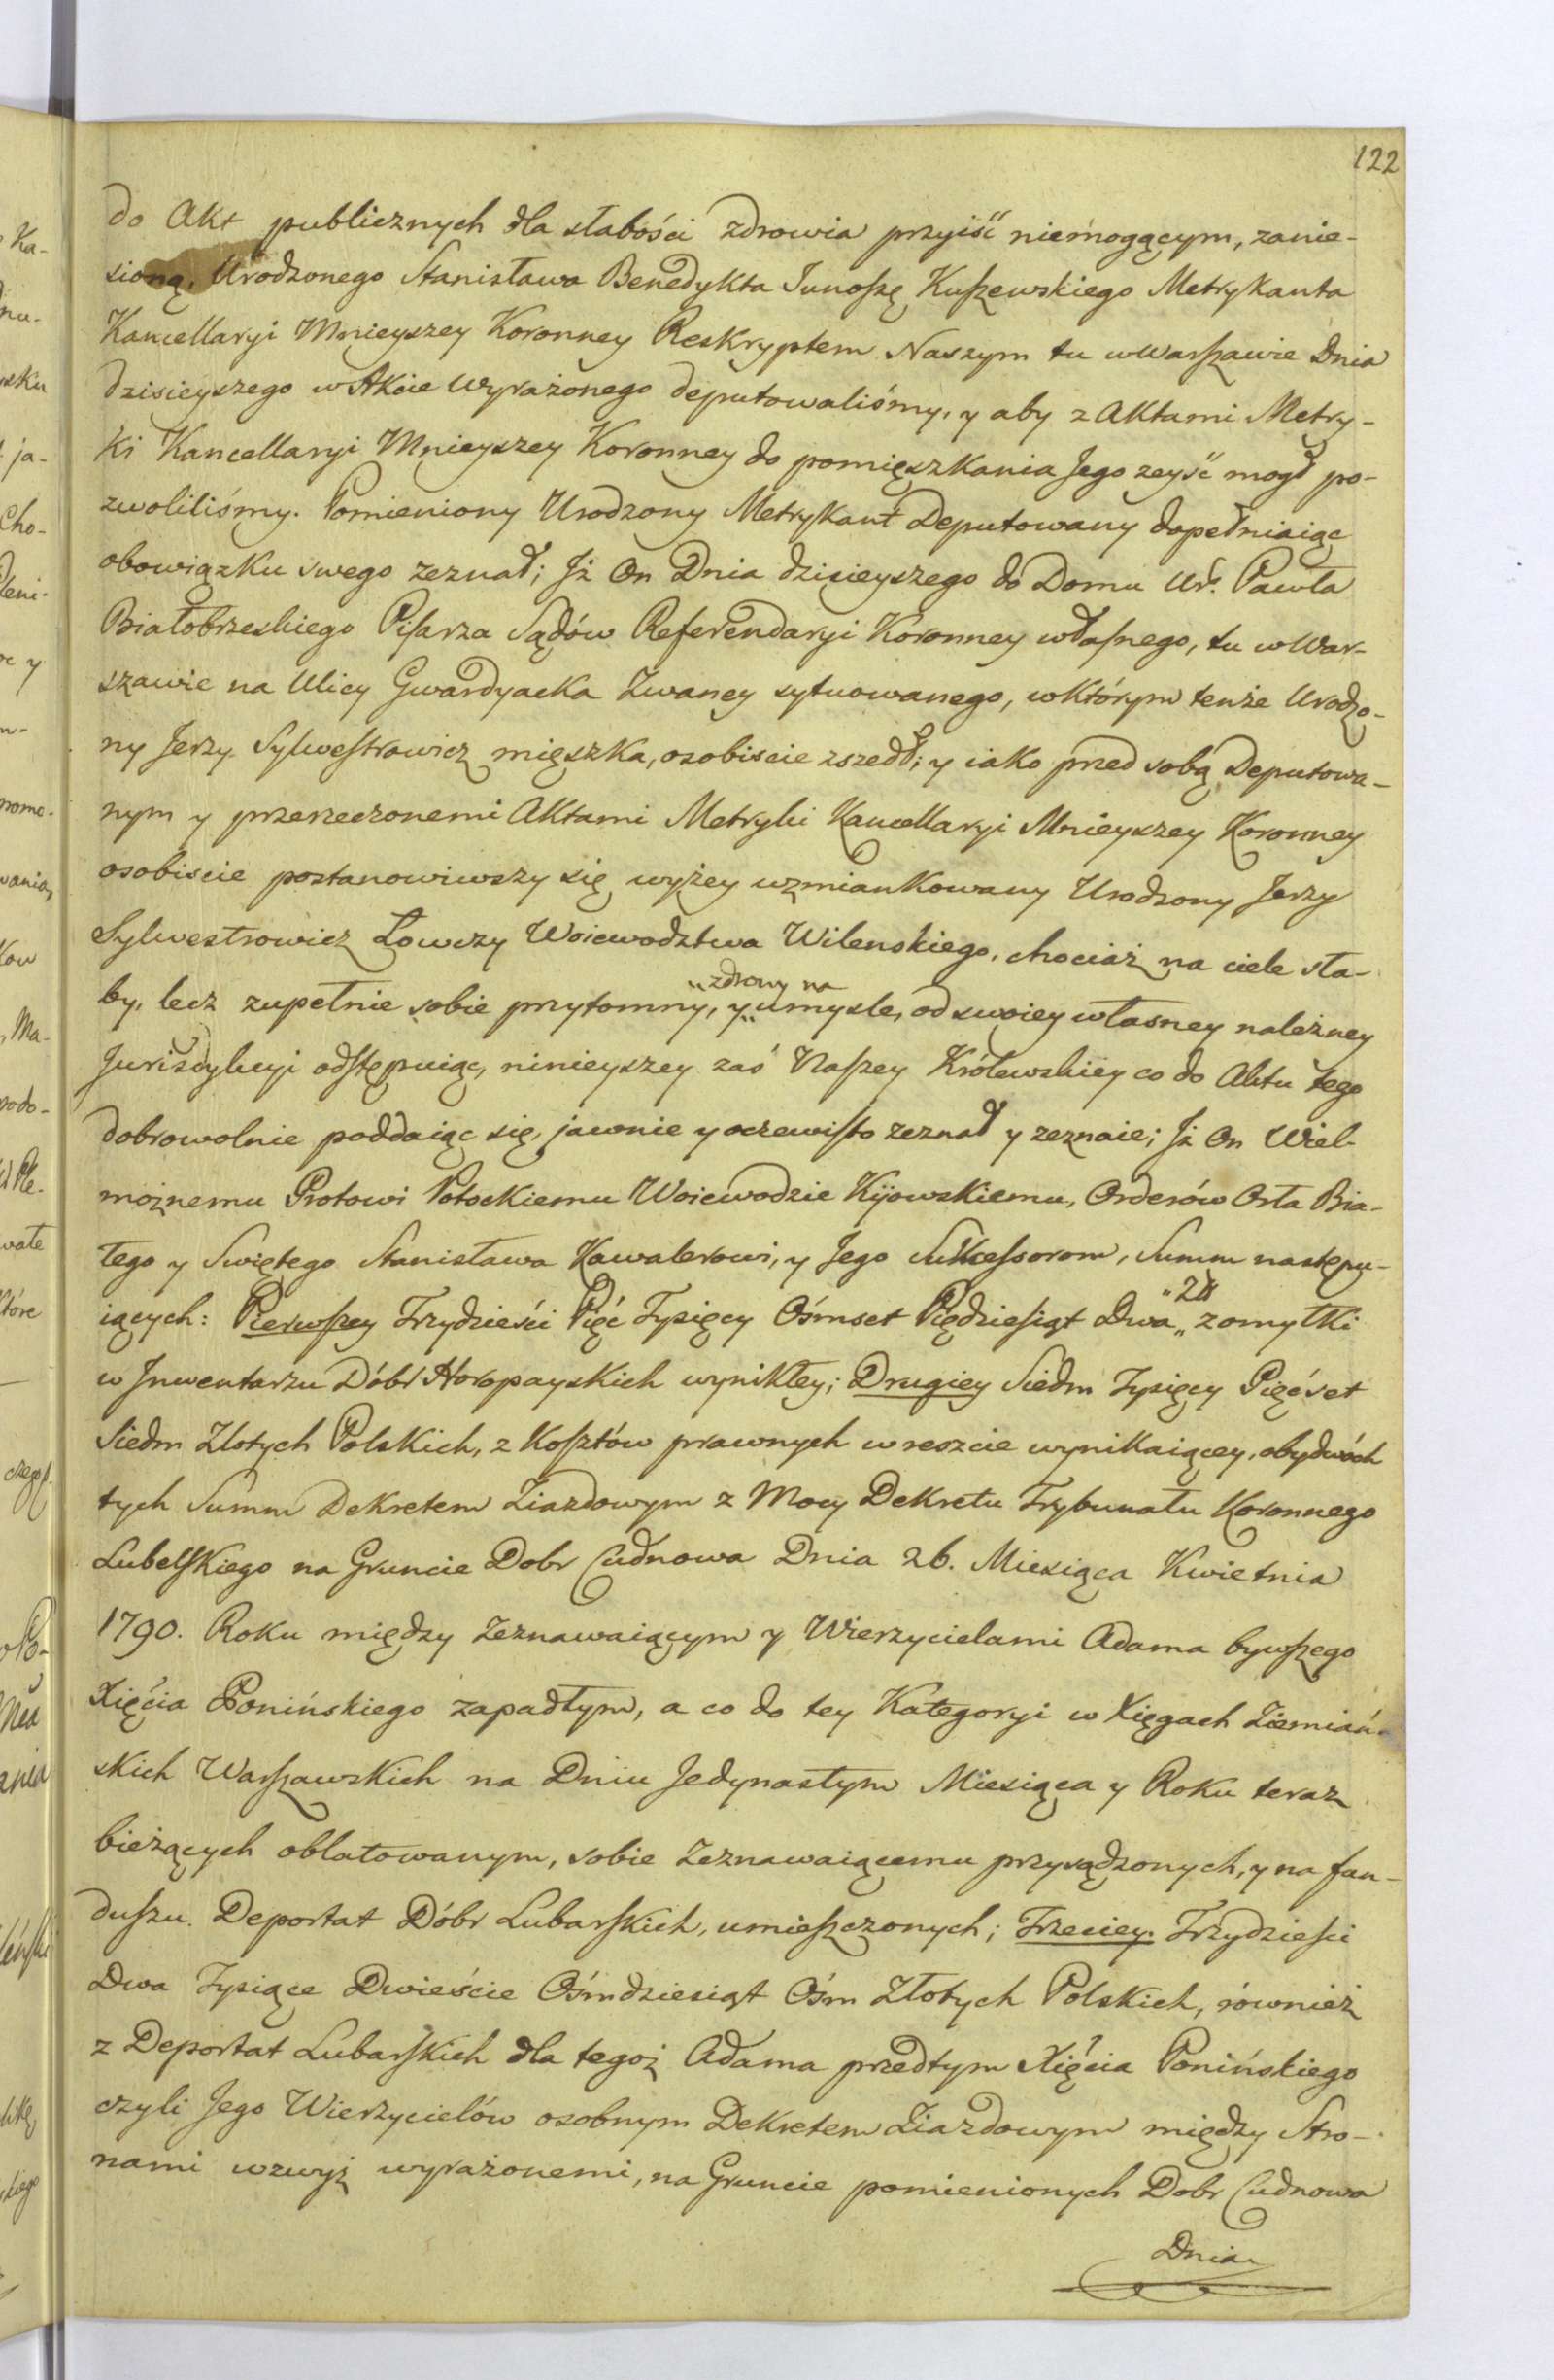 122
do Akt publicznych dla słabości zdrowia przyiść niemogącym, zanie-
sioną, Urodzonego Stanisława Benedykta Junoszę Kuszewskiego Metrykanta
Kancellaryi Mnieyszey Koronney Reskryptem Naszym tu w Warszawie Dnia
dzisieyszego w Akcie wyrażonego deputowaliśmy, y aby z Aktami Metry-
ki Kancellaryi Mnieyszey Koronney do pomięszkania Jego zeyść mogł po-
zwoliliśmy. Pomieniony Urodzony Metrykant Deputowany dopełniaiąc
obowiązku swego zeznał; Iż On Dnia dzisieyszego do Domu Ur. Pawła
Białobrzeskiego Pisarza Sądów Referendaryi Koronney własnego, tu w War-
szawie na Ulicy Gwardyacka Zwaney sytuowanego, w którym tenże Urodzo-
ny Jerzy Sylwestrowicz mięszka, osobiscie zszedł; y iako przed sobą Deputowa-
nym y przerzeczonemi Aktami Metryki Kancellaryi Mnieyszey Koronney
osobiscie postanowiwszy się wyżey wzmiankowany Urodzony Jerzy
Sylwestrowicz Łowczy Woiewodztwa Wilenskiego, chociaż na ciele sła-
„zdrowy na
by, lecz zupełnie sobie przytomny, y„ umysle, od swoiey własney należney
Jurizdykcyi odstępuiąc, ninieyszey zaś Naszey Królewskiey co do Aktu tego
dobrowolnie poddaiąc się, jawnie y oczewisto zeznał y zeznaie; Iż On Wiel-
możnemu Protowi Potockiemu Woiewodzie Kijowskiemu, Orderów Orła Bia-
łego y Swiętego Stanisława Kawalerowi, y Jego Sukcessorom, Summ następu-
„Zł
iących: Pierwszey Trzydzieści Pięć Tysięcy Ośmset Pięćdziesiąt Dwa„ z omyłki
w Inwentarzu Dóbr Horopayskich wynikłey; Drugiey Siedm Tysięcy Pięćset
Siedm Złotych Polskich, z Kosztów prawnych w reszcie wynikaiącey, obydwóch
tych Summ Dekretem Ziazdowym z Mocy Dekretu Trybunału Koronnego
Lubelskiego na Gruncie Dobr Cudnowa Dnia 26. Miesiąca Kwietnia
1790. Roku między Zeznawaiącym y Wierzycielami Adama bywszego
Xięcia Ponińskiego zapadłym, a co do tey Kategoryi w Xięgach Ziemiań-
skich Warszawskich na Dniu Jedynastym Miesiąca y Roku teraz
bieżących oblatowanym, sobie Zeznawaiącemu przysądzonych, y na fun-
duszu Deportat Dóbr Lubarskich, umieszczonych; Trzeciey. Trzydziesci
Dwa Tysiące Dwieście Ośmdziesiąt Ośm Złotych Polskich, również
z Deportat Lubarskich dla tegoż Adama przedtym Xięcia Ponińskiego
czyli Jego Wierzycielów osobnym Dekretem Ziazdowym między Stro-
nami wzwyż wyrażonemi, na Gruncie pomienionych Dobr Cudnowa
Dnia